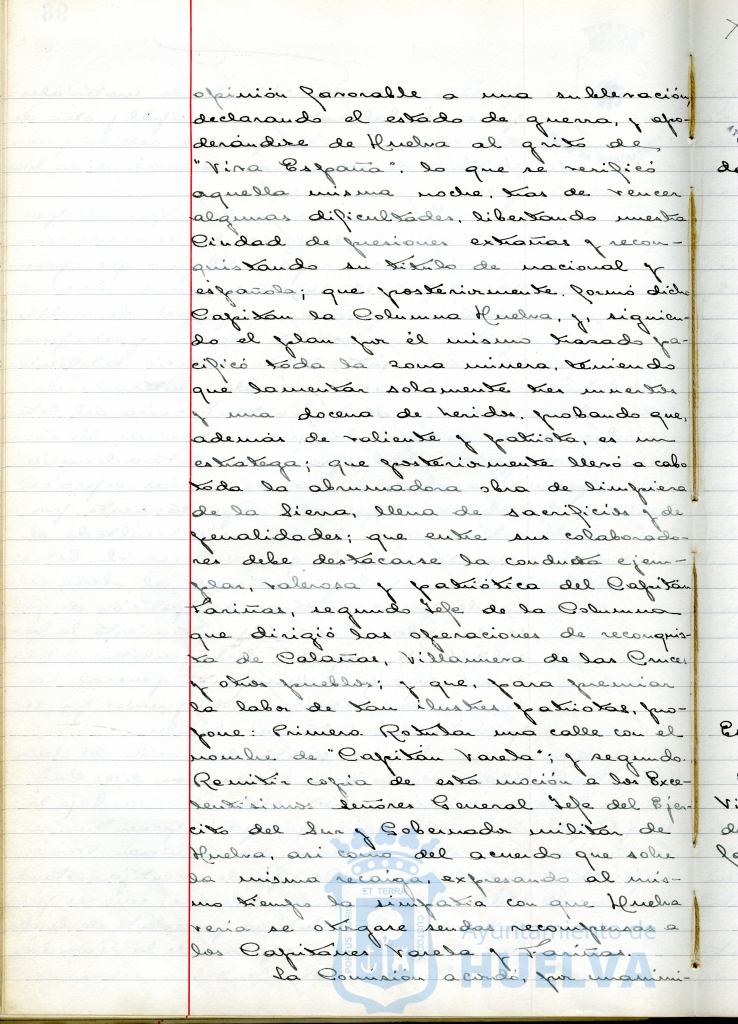 opinión favorable a una sublevación,
declarando el estado de guerra, y apo-
derándose de Huelva al grito de,
"Viva España", lo que se verificó
aquella misma noche, tras de vencer
algunas dificultades, libertando nuestra
Ciudad de presiones extrañas y recon-
quistando su título de nacional y
española; que posteriormente, formó dicho
Capitán la Columna Huelva, y, siguien-
do el plan por él mismo trazado pa-
cificó toda la zona minera, teniendo
que lamentar solamente tres muertos
y una docena de heridos, probando que,
además de valiente y patriota, es un
estratega; que posteriormente llevó a cabo
toda la abrumadora obra de limpieza
de la Sierra, llena de sacrificios y de
penalidades; que entre sus colaborado-
res debe destacarse la conducta ejem-
plar, valerosa y patriótica del Capitán
Fariñas, segundo Jefe de la Columna
que dirigió las operaciones de reconquis-
ta de Calañas, Villanueva de las Cruces
y otros pueblos; y que, para premiar
la labor de tan ilustres patriotas, pro-
pone: Primero. Rotular una calle con el
nombre de "Capitán Varela"; y segundo.
Remitir copia de esta moción a los Exce-
lentísimos señores General Jefe del Ejér-
cito del Sur y Gobernador militar de
Huelva, así como del acuerdo que sobre
la misma recaiga, expresando al mis-
mo tiempo la simpatía con que Huelva
vería se otorgase sendas recompensas a
los Capitanes Varela y Fariñas.
La Comisión acordó, por unanimi-
Ayuntamiento de
HUELVA